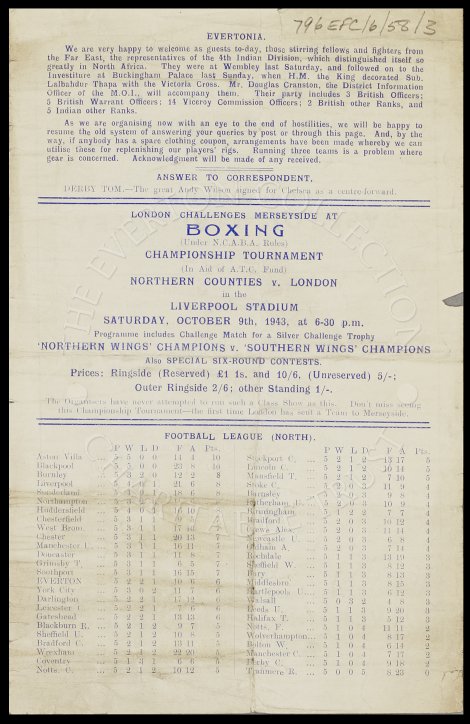 796 EFC/6/58/3
EVERTONIA.
We are very happy to welcome as guests to-day, those stirring fellows and fighters from
the Far East, the representatives of the 4th Indian Division, which distinguished itself so
greatly in North Africa. They were at Wembley last Saturday, and followed on to the
Investiture at Buckingham Palace last Sunday, when H.M. the King decorated Sub.
Lalbahdur Thapa with the Victoria Cross. Mr. Douglas Cranston, the District Information
Officer of the M.O.I., will accompany them. Their party includes 3 British Officers;
5 British Warrant Officers; 14 Viceroy Commission Officers; 2 British other Ranks, and
5 Indian other Ranks.
As we are organising now with an eye to the end of hostilities, we will be happy to
resume the old system of answering your queries by post or through this page. And, by the
way, if anybody has a spare clothing coupon, arrangements have been made whereby we can
utilise these for replenishing our players' rigs. Running three teams is a problem where
gear is concerned. Acknowledgment will be made of any received.
ANSWER TO CORRESPONDENT.
DERBY TOM.—The great Andy Wilson signed for Chelsea as a centre-forward.
LONDON CHALLENGES MERSEYSIDE AT
BOXING
(Under N.C.A.B.A. Rules)
CHAMPIONSHIP TOURNAMENT
(In Aid of A.T.C. Fund)
NORTHERN COUNTIES v. LONDON
in the
LIVERPOOL STADIUM
SATURDAY, OCTOBER 9th, 1943, at 6-30 p.m.
Programme includes Challenge Match for a Silver Challenge Trophy
'NORTHERN WINGS' CHAMPIONS v. 'SOUTHERN WINGS' CHAMPIONS
Also SPECIAL SIX-ROUND CONTESTS.
Prices: Ringside (Reserved) £1 1s. and 10/6, (Unreserved) 5/-;
Outer Ringside 2/6; other Standing 1/-.
The Organisers have never attempted to run such a Class Show as this. Don't miss seeing
this Championship Tournament—the first time London has sent a Team to Merseyside.
FOOTBALL LEAGUE (NORTH).
P W L D F A Pts.
Aston Villa ... 5 5 0 0 14 4 10
Blackpool ... 5 5 0 0 23 8 10
Burnley ... 5 3 2 0 12 2 8
Liverpool ... 5 4 1 0 21 6 8
Sunderland ... 18 6 8
Northampton
Huddersfield ... 5 4
Chesterfield ... 5 3
West Brom. ... 5 3 1 1 17
Chester ... 5 3 1 1 20 13 7
Manchester U. ... 5 3 1 1 16 11 7
Doncaster ... 5 3 1 1 11 8 7
Grimsby T. ... 5 3 1 1 6 5 7
Southport ... 5 3 1 1 16 15 7
EVERTON ... 5 2 2 10 6 6
York City ... 5 3 0 2 11 7 6
Darlington ... 5 2 2 1 17 12
Leicester C. ... 5 2 2 1 7 6 6
Gateshead ... 5 2 2 1 13 13 6
Blackburn R. ... 5 2 1 2 9 7 5
Sheffield U. ... 5 2 1 2 10 8 5
Bradford C. ... 5 2 1 2 13 11 5
Wrexham ... 5 2 1 2 22 20
Coventry ... 5 1 3 1 6 6 5
Notts. C. ... 5 2 1 2 10 12 5
P W L D F A Pts.
Stockport C. ... 5 2 1 2 13 17 5
Lincoln C. ... 5 2 1 2 10 14 5
Mansfield T. ... 5 2 1 2 7 10 5
Stoke C. ... 5 2 0 3 11 9 4
Barnsley ... 9 8 4
Rotherham ... 10 9 4
Birmingham ... 5 1 2 2 7 7 4
Bradford ... 5 2 0 3 10 12 4
Crewe Alex. ... 5 2 0 3 11 14 4
Newcastle U. ... 5 2 0 3 6 8 4
Oldham A. ... 5 2 0 3 7 14 4
Rochdale ... 5 1 1 3 13 10 3
Sheffield W. ... 5 1 1 3 18 12 3
Bury ... 5 1 1 3 8 13 3
Middlesbro. ... 5 1 1 3 8 15 3
Hartlepools U. ... 5 1 1 3 6 12 3
Walsall ... 5 0 3 2 4 8 3
Leeds U. ... 5 1 1 3 9 20 3
Halifax T. ... 5 1 1 3 5 12 3
Notts. F. ... 5 1 0 4 13 11 2
Wolverhampton ... 5 1 0 4 8 17 2
Bolton W. ... 5 1 0 4 6 14 2
Manchester C. ... 5 1 0 4 7 17 2
Derby C. ... 5 1 0 4 9 18 2
Tranmere R. ... 5 0 0 5 8 23 0
THE EVERTON COLLECTION
CHARITABLE TRUST